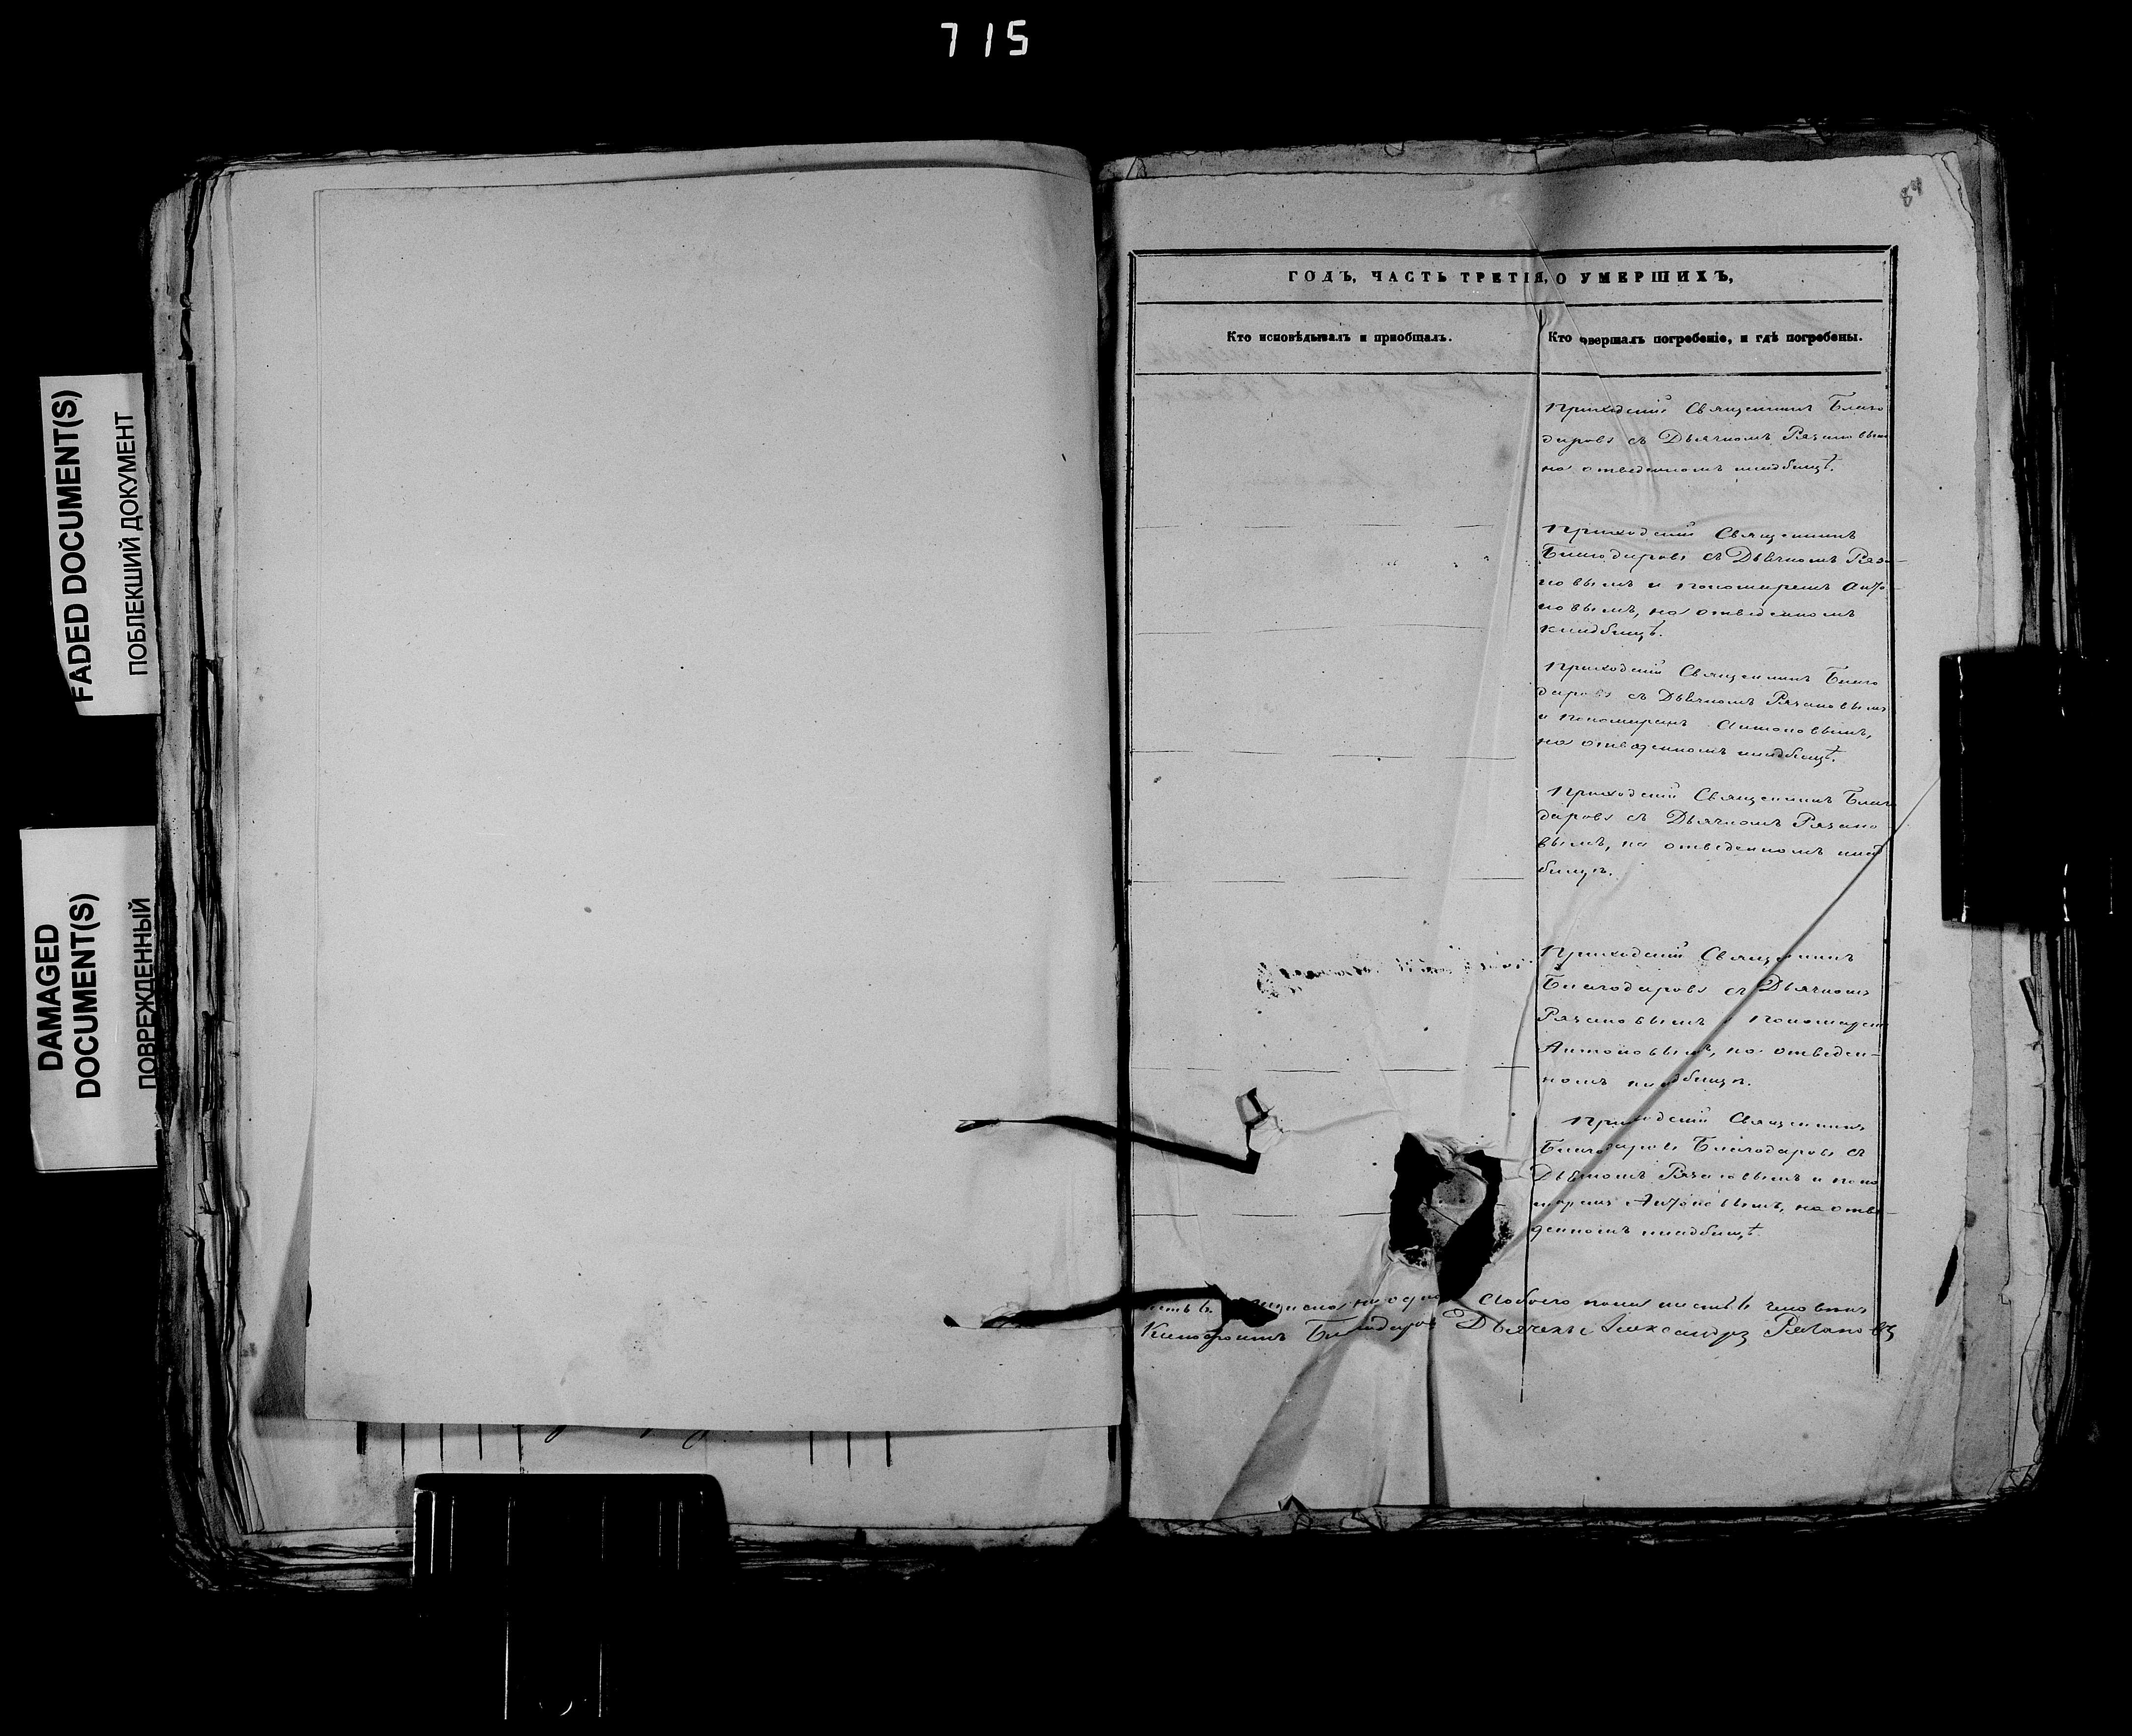 715
FADED DOCUMENT(S)
ПОБЛЕКШИЙ ДОКУМЕНТ
DAMAGED
DOCUMENT(S)
ПОВРЕЖДЕННЫЙ
84
ГОДЪ, ЧАСТЬ ТРЕТІЯ, О УМЕРШИХЪ,
Кто исповѣдывалъ и пріобщалъ.
Кто овершалъ погребеніе, и гдѣ погребены.
Приходскій Священникъ Благо
даровъ съ Дьячкомъ Рязановымъ
на отведенномъ кладбищѣ.
Приходскій Священникъ
Благодаровъ съ Дьячкомъ Ряза-
новымъ и пономаремъ Анто-
новымъ, на отведенномъ
кладбищѣ.
Приходскій Священникъ Благо
даровъ съ Дьячкомъ Рязановымъ
и пономаремъ Антоновымъ,
на отведенномъ кладбищѣ.
Приходскій Священникъ Благо
даровъ съ Дьячкомъ Рязано
вымъ, на отведенномъ клад
бищѣ.
Приходскій Священникъ
Благодаровъ съ Дьячкомъ
Рязановымъ и пономарем
Антоновымъ, на отведен-
номъ кладбищѣ.
Приходскій Священникъ
Благодаровъ Благодаровъ съ
Дьячкомъ Рязановымъ и поно
маремъ Антоновымъ, на отве-
денномъ кладбищѣ.
обоего пола шесть 6 человѣкъ
Благодаровъ Дьячекъ Александръ Рязановъ